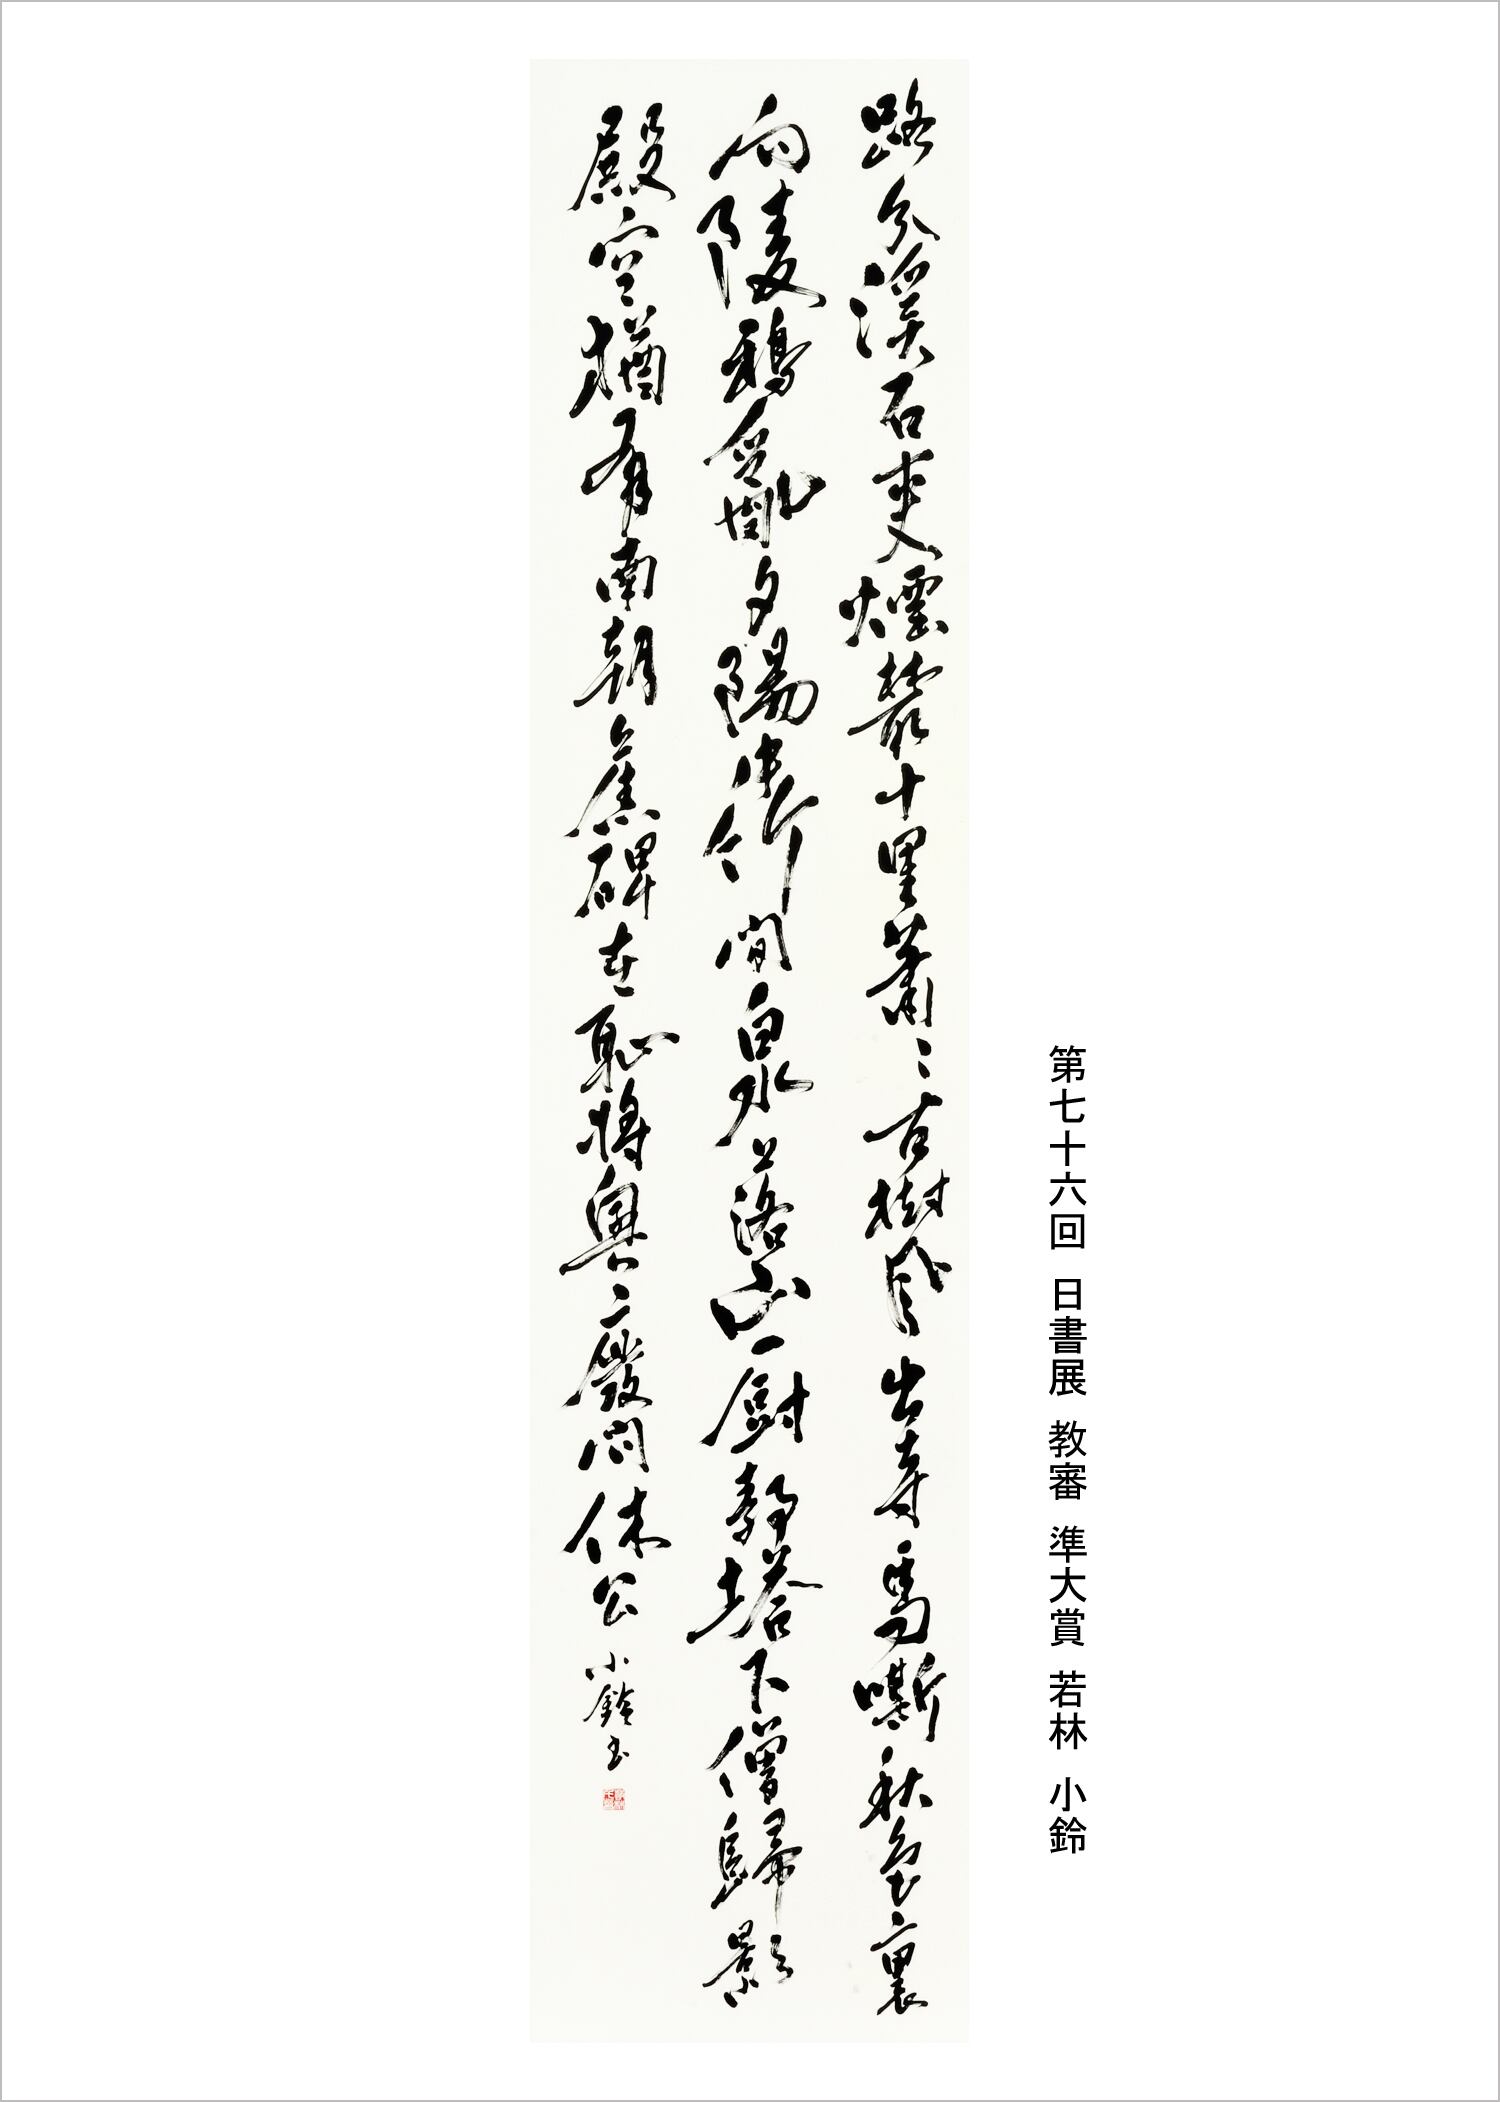 第七十六回 日書展 教審 準大賞 若林 小鈴
路分溪石夾煙叢十里蕭〻古樹風出寺馬嘶秋色裏
向陵鴉亂夕陽中竹間泉落山廚靜塔下僧歸影
殿空猶有南朝舊碑在恥將興廢問休公 小鈴書